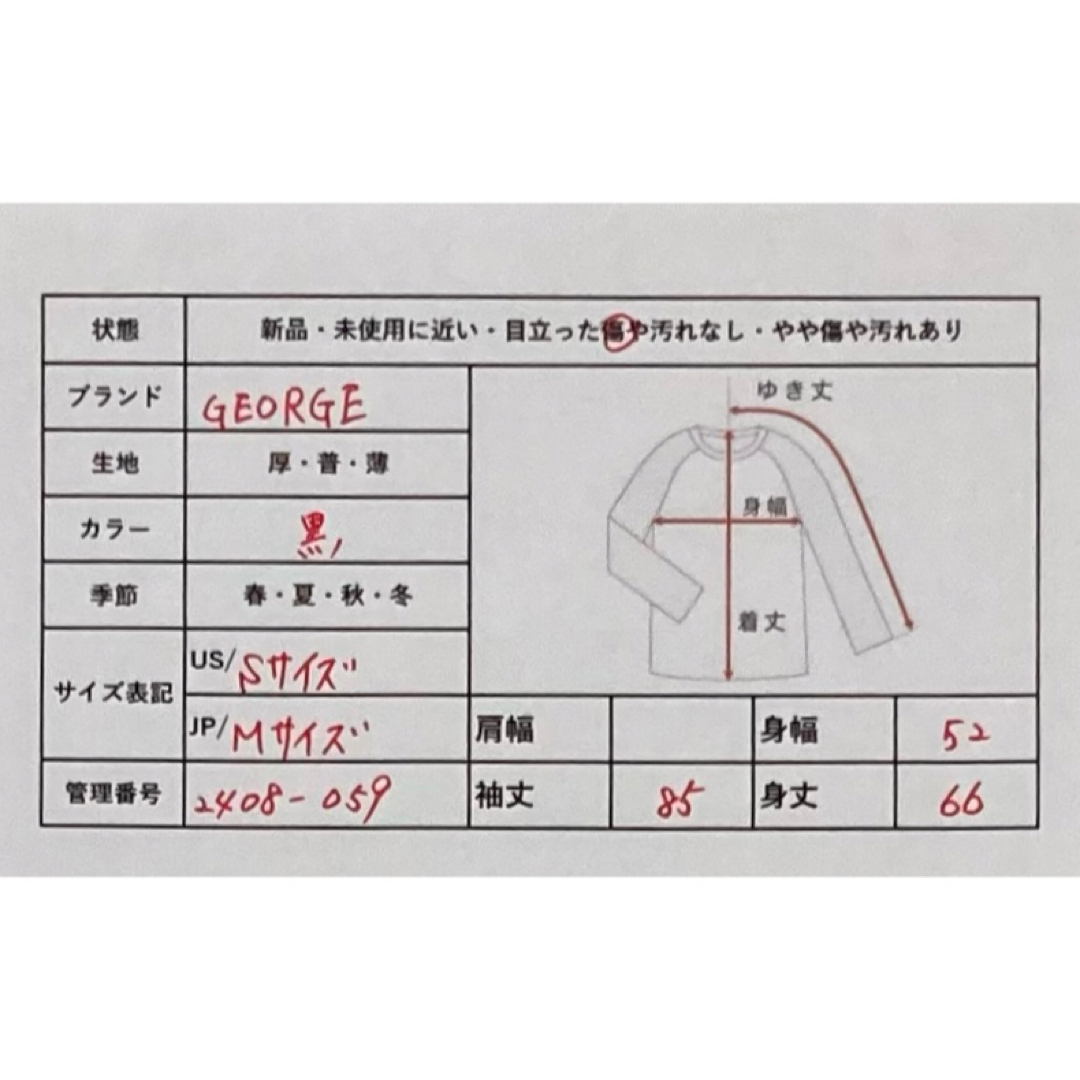 状態 新品・未使用に近い・目立った傷や汚れなし・やや傷や汚れあり
ブランド GEORGE
ゆき丈
生地 厚・普・薄
身幅
カラー 黒
季節 春・夏・秋・冬
着丈
サイズ表記 US/Sサイズ
JP/Mサイズ 肩幅 身幅 52
管理番号 2408-059 袖丈 85 身丈 66